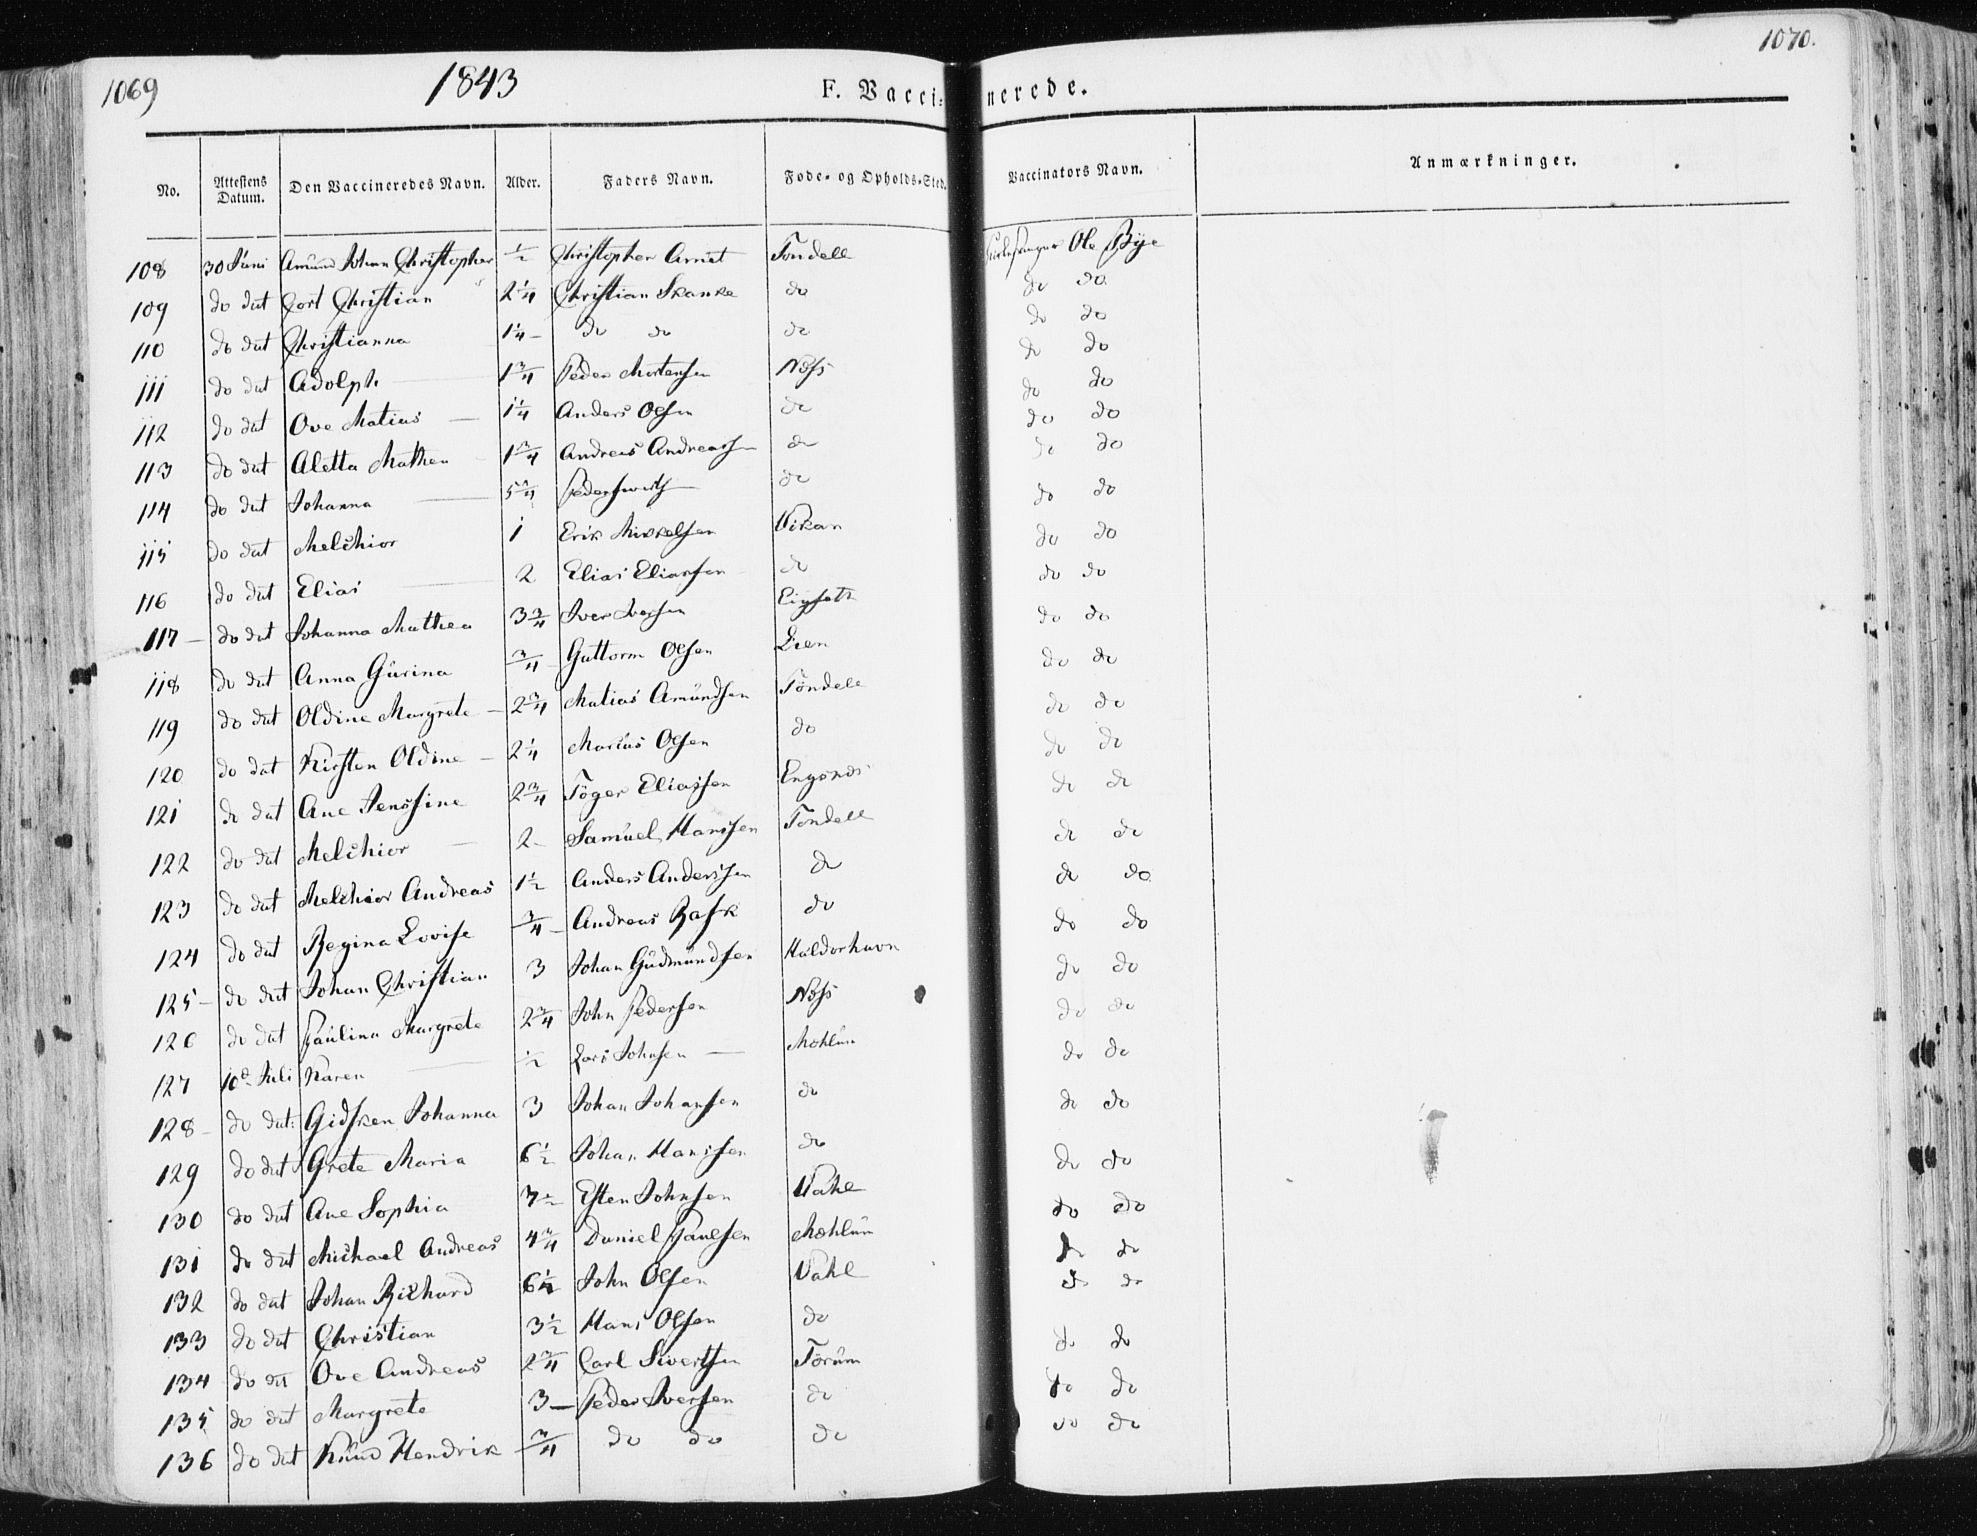 1069 1843 F. Vaccinerede. 1070.
No. Attestens Datum. Den Vaccineredes Navn. Alder. Faders Navn. Føde- og Opholds-Sted. Vaccinators Navn. Anmærkninger.
108 30 Juni Amund Johan Christopher ½ Christopher Arndt Tondell Ole Bÿe
109 do dat Cort Christian 2¼ Christian Skanke do do do
110 do dat Christianna 1¼ - do do do do do
111 do dat Adolph 1¾ Peder Mortensen Næss do do
112 do dat Ove Matias — 1¼ Anders Olsen do do do
113 do dat Aletta Mathea 1¾ Andreas Andreassen do do do
114 do dat Johanna — do do do
115 do dat Melchior 1 Erik Mikkelsen Vikan do do
116 do dat Elias — 2 Elias Eliassen do do do
117 - do dat Johanna Mathea 3¾ Iver Iversen do do
118 do dat Anna Gurina ¾ Guttorm Olsen Lien do do
119 do dat Oldine Margrete - 2¾ Matias Amundsen Tondell do do
120 do dat Kirsten Oldine - 2¼ Marius Olsen do do do
121 do dat Ane Jenssine 2¾ Töger Eliassen do do
122 do dat Melchior — 2 - Samuel Hanssen Tondell do do
123 do dat Melchior Andreas 1½ Anders Anderssen do do do
124 do dat Regina Lovise ¾ - Andreas Rask do do do
125 - do dat Johan Christian 3 Johan Gudmundsen Haldorhavn do do
126 do dat Paulina Margrete 2¾ John Pedersen Næss do do
127 10de Juli Karen — ½ Lars Johnsen — Mæhlum do do
128 - do dat: Gidsken Johanna 3 Johan Johansen do do do
129 do dat Grete Maria 6½ Johan Hanssen do do do
130 do dat Ane Sophia 7½ Esten Johnsen Vahl do do
131 do dat Michael Andreas 4¾ Daniel Paulsen Mæhlum do do
132 do dat Johan Richard 6¼ John Olsen Vahl do do
133 do dat Christian 3½ Hans Olsen do do do
134 do dat Ove Andreas 2¾ Carl Sivertsen Torum do do
135 do dat Margrete 3 — Peder Iversen do do do
136 do dat Knud Hendrik ¾ do do do do do